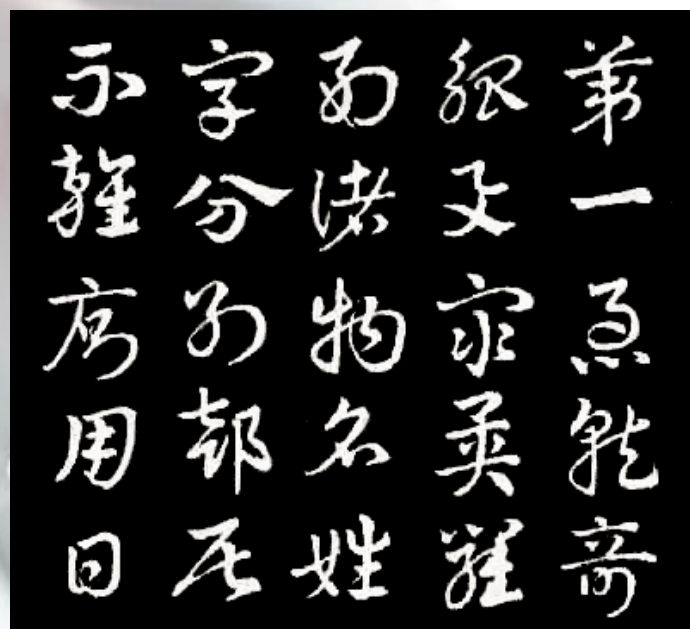 第一急就奇
觚與衆異羅
列諸物名姓
字分別部居
不雜廁用日